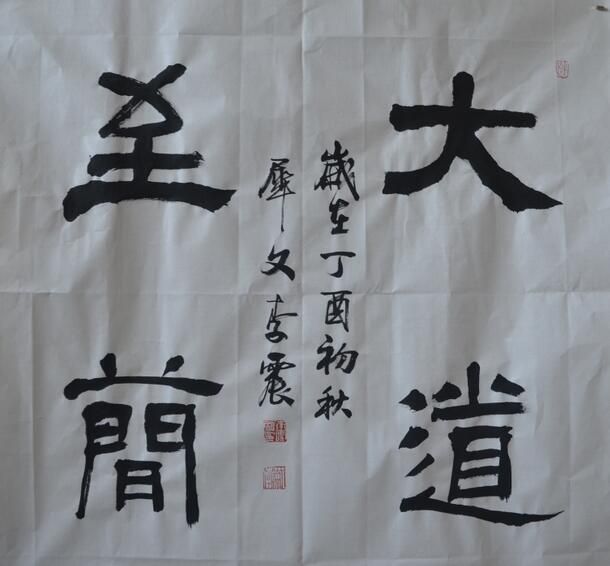 大道
歲在丁酉初秋
犀文李震
至簡